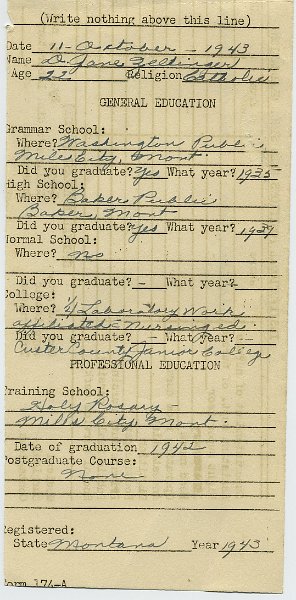 (Write nothing above this line)
Date 11-October-1943
Name O. Jane Zeltinger
Age 22 Religion Catholic
GENERAL EDUCATION
Grammar School:
Where? Washington Public
Miles City, Mont.
Did you graduate? Yes What year? 1935
High School:
Where? Baker Public
Baker, Mont
Did you graduate? Yes What year? 1939
Normal School:
Where? No
Did you graduate? - What year? -
College:
Where? Laboratory Work
affiliated - Nursing ed.
Did you graduate? - What year? -
Custer County Junior College
PROFESSIONAL EDUCATION
Training School:
Holy Rosary -
Miles City, Mont.
Date of graduation 1942
Postgraduate Course:
None
Registered:
State Montana Year 1943
Form 174-A